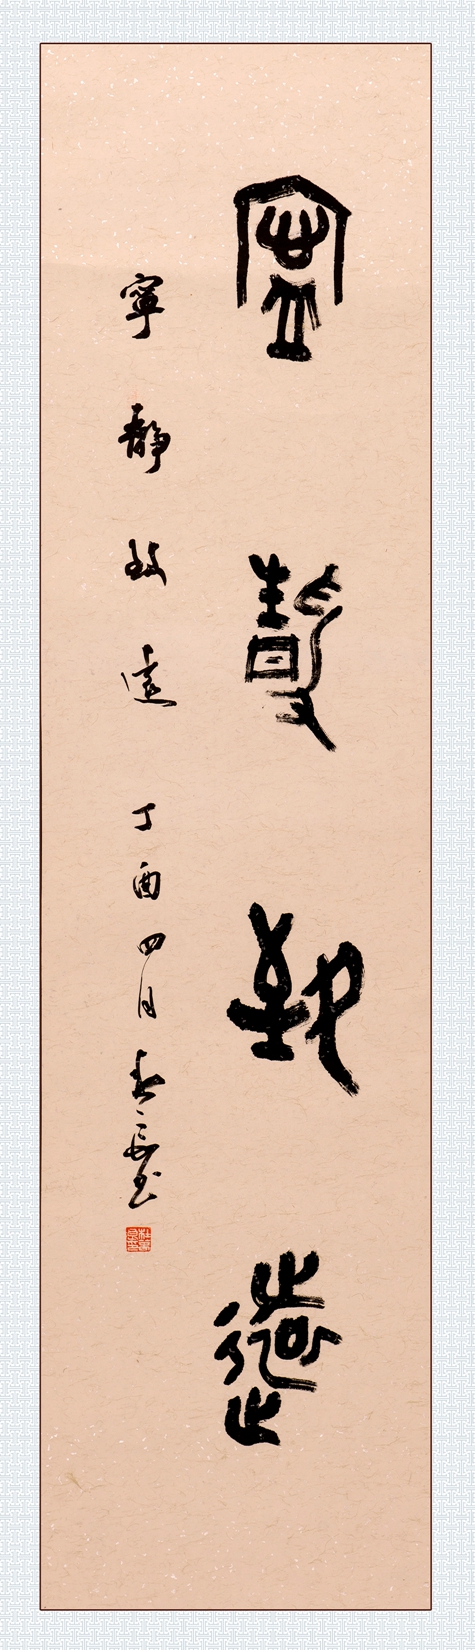 寧靜致遠
寧靜致遠 丁酉四月 春辰书